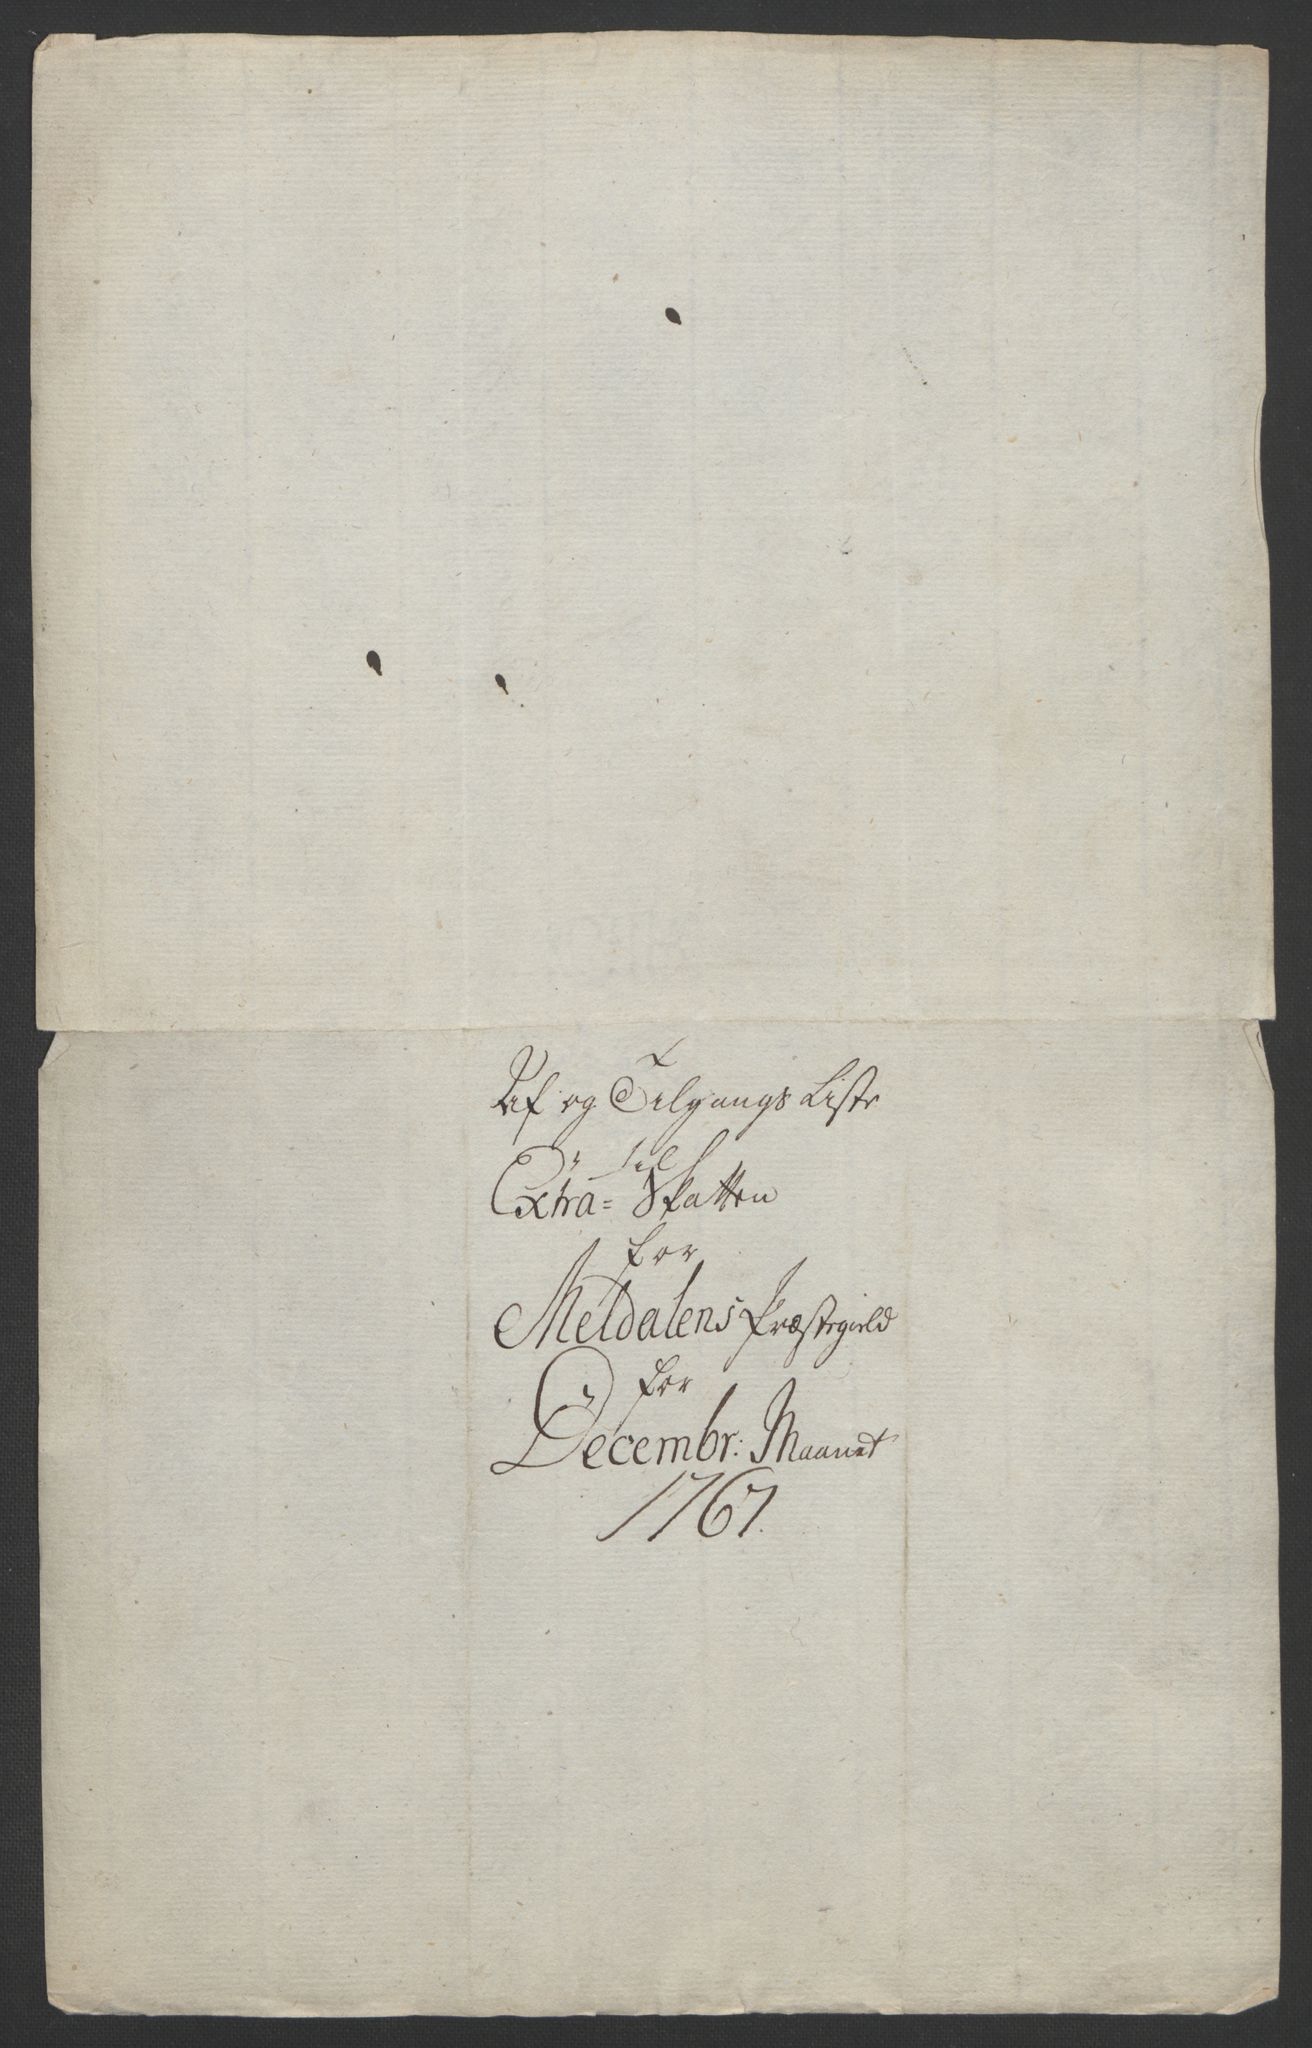 Af og Tilgangs Liste
til
Extra= Skatten
for
Meldalens Præstegield
for
Decembr: Maanet
1767.